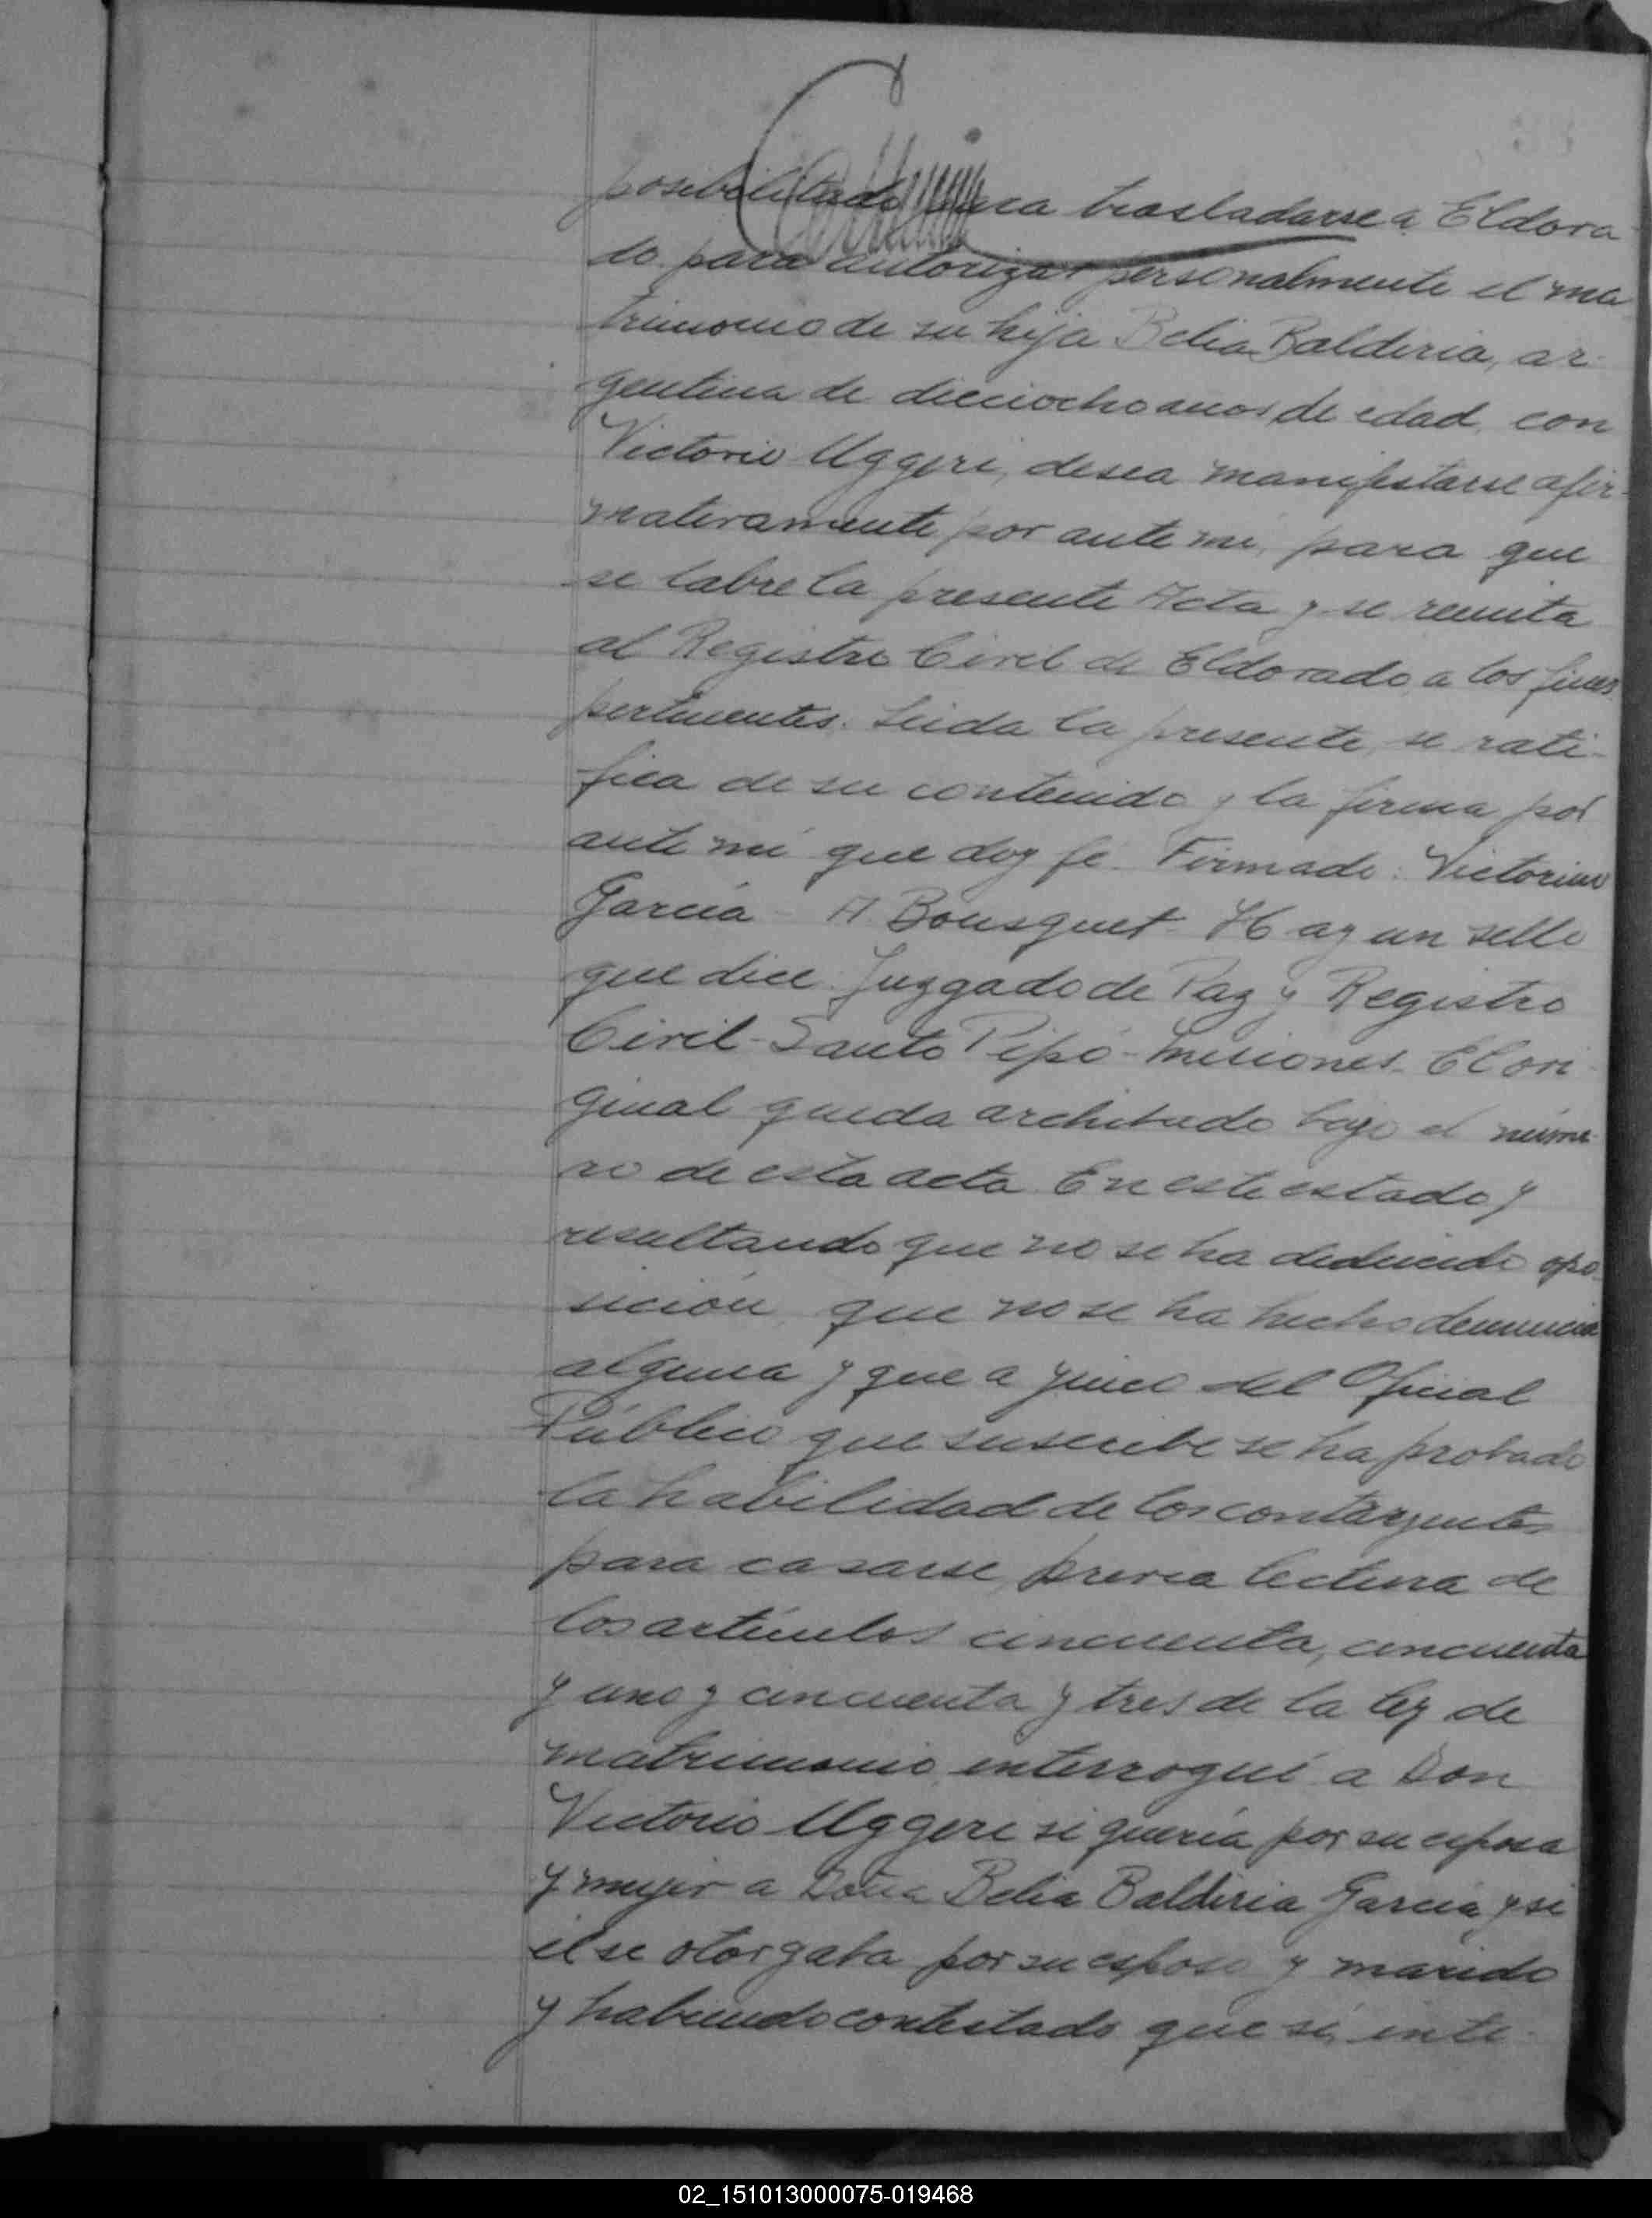 posibilitado para trasladarse a Eldora
do para autorizar personalmente el ma
trimonio de su hija Belia Baldiria, ar-
gentina de dieciocho años de edad, con
Victorio Uggeri, desea manifestarse afir-
mativamente por ante mi, para que
se labre la presente Acta y se remita
al Registro Civil de Eldorado, a los fines
pertinentes. Leida la presente, se rati-
fica de su contenido y la firma por
ante mi que doy fe. Firmado: Victorino
García - A. Bousquet - Hay un sello
que dice: Juzgado de Paz y Registro
Civil - Santo Pipó - Misiones. El ori-
ginal queda archivado bajo el núme-
ro de esta acta. En este estado y
resultando que no se ha deducido opo-
sición, que no se ha hecho denuncia
alguna y que a juicio del Oficial
Público que suscribe se ha probado
la habilidad de los contrayentes
para casarse, previa lectura de
los artículos cincuenta, cincuenta
y uno y cincuenta y tres de la ley de
matrimonio, interrogué a Don
Victorio Uggeri si quería por su esposa
y mujer a Doña Belia Baldiria García y si
él se otorgaba por su esposo y marido
y habiendo contestado que sí, inte-
02_151013000075-019468